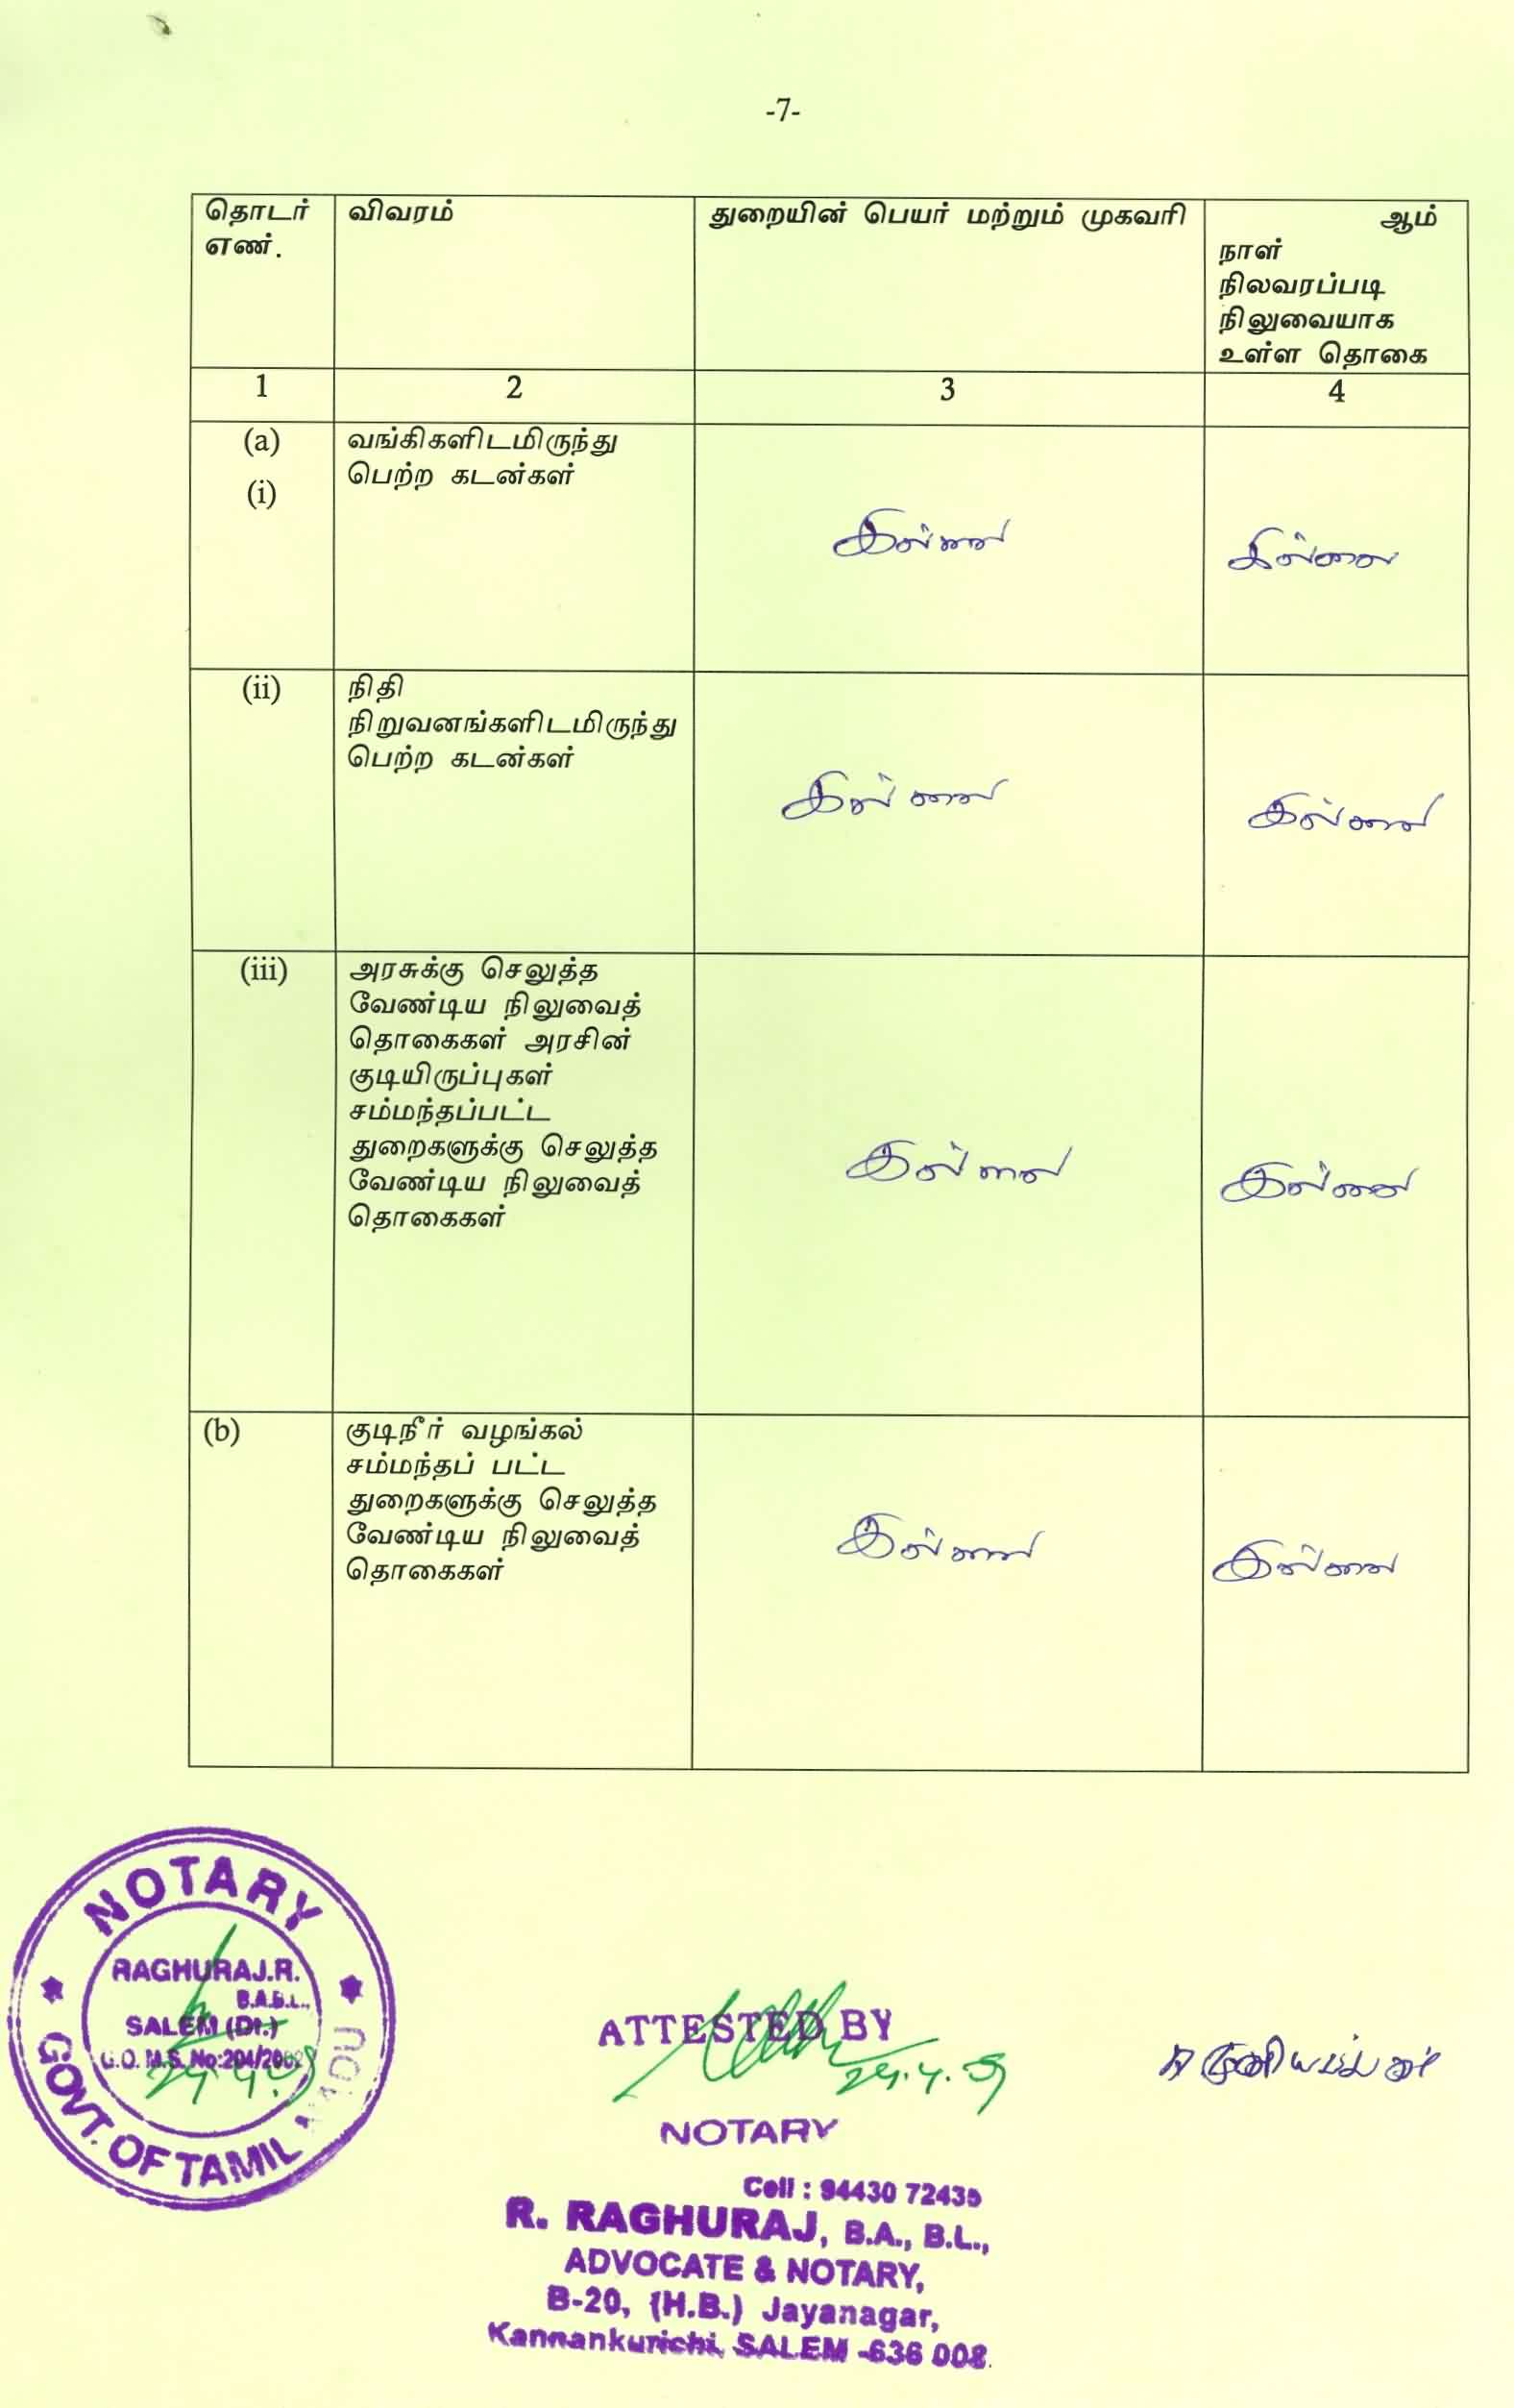 -7-
தொடர் எண்.
விவரம்
துறையின் பெயர் மற்றும் முகவரி
ஆம்
நாள்
நிலவரப்படி
நிலுவையாக
உள்ள தொகை
1
2
3
4
(a)
(i)
வங்கிகளிடமிருந்து
பெற்ற கடன்கள்
இல்லை
இல்லை
(ii)
நிதி
நிறுவனங்களிடமிருந்து
பெற்ற கடன்கள்
இல்லை
இல்லை
(iii)
அரசுக்கு செலுத்த
வேண்டிய நிலுவைத்
தொகைகள் அரசின்
குடியிருப்புகள்
சம்மந்தப்பட்ட
துறைகளுக்கு செலுத்த
வேண்டிய நிலுவைத்
தொகைகள்
இல்லை
இல்லை
(b)
குடிநீர் வழங்கல்
சம்மந்தப் பட்ட
துறைகளுக்கு செலுத்த
வேண்டிய நிலுவைத்
தொகைகள்
இல்லை
இல்லை
NOTARY
RAGHURAJ.R.
B.A.B.L.,
SALEM (Dt.)
G.O. M.S. No:204/2002
GOVT. OF TAMIL NADU
ATTESTED BY
NOTARY
Cell : 94430 72435
R. RAGHURAJ, B.A., B.L.,
ADVOCATE & NOTARY,
B-20, (H.B.) Jayanagar,
Kannankurichi, SALEM -636 008.